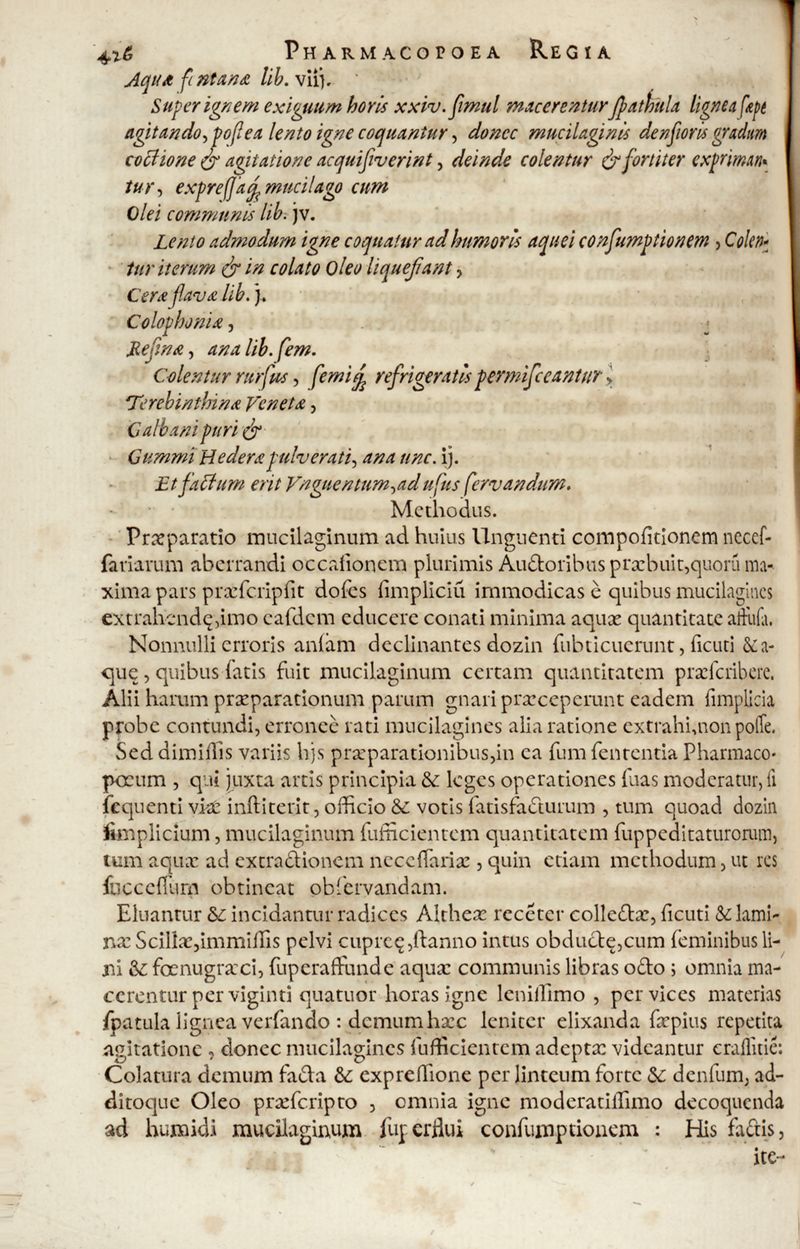 426 PHARMACOPOEA REGIA
Aquæ fontanæ lib. viij.
Super ignem exiguum horis xxiv. ſimul macerentur ſpathula lignea ſæpe
agitando, poſtea lento igne coquantur, donec mucilaginis denſioris gradum
coctione & agitatione acquiſiverint, deinde colentur & fortiter expriman-
tur, expreſſaq; mucilago cum
Olei communis lib. jv.
Lento admodum igne coquatur ad humoris aquei conſumptionem, Colen-
tur iterum & in colato Oleo liquefiant,
Ceræ flavæ lib. j.
Colophoniæ,
Reſinæ, ana lib. ſem.
Colentur rurſus, ſemiq; refrigeratis permiſceantur,
Terebinthinæ Venetæ,
Galbani puri &
Gummi Hederæ pulverati, ana unc. ij.
Et factum erit Vnguentum, ad uſus ſervandum.
Methodus.
Præparatio mucilaginum ad huius Unguenti compoſitionem neceſ-
ſariarum aberrandi occaſionem plurimis Auctoribus præbuit, quorū ma-
xima pars præſcripſit doſes ſimpliciū immodicas è quibus mucilagines
extrahendę, imo eaſdem educere conati minima aquæ quantitate affuſa.
Nonnulli erroris anſam declinantes dozin ſubticuerunt, ſicuti & a-
quę, quibus ſatis fuit mucilaginum certam quantitatem præſcribere.
Alii harum præparationum parum gnari præceperunt eadem ſimplicia
probe contundi, erroneè rati mucilagines alia ratione extrahi, non poſſe.
Sed dimiſſis variis hjs præparationibus, in ea ſum ſententia Pharmaco-
pœum, qui juxta artis principia & leges operationes ſuas moderatur, ſi
ſequenti viæ inſtiterit, officio & votis ſatisfacturum, tum quoad dozin
ſimplicium, mucilaginum ſufficientem quantitatem ſuppeditaturorum,
tum aquæ ad extractionem neceſſariæ, quin etiam methodum, ut res
ſucceſſum obtineat obſervandam.
Eluantur & incidantur radices Altheæ recéter collectæ, ſicuti & lami-
næ Scillæ, immiſſis pelvi cupreę, ſtanno intus obductę, cum ſeminibus li-
ni & fœnugræci, ſuperaffunde aquæ communis libras octo; omnia ma-
cerentur per viginti quatuor horas igne leniſſimo, per vices materias
ſpatula lignea verſando: demum hæc leniter elixanda ſæpius repetita
agitatione, donec mucilagines ſufficientem adeptæ videantur craſſitiē:
Colatura demum facta & expreſſione per linteum forte & denſum, ad-
ditoque Oleo præſcripto, omnia igne moderatiſſimo decoquenda
ad humidi mucilaginum ſuperflui conſumptionem: His factis,
ite-